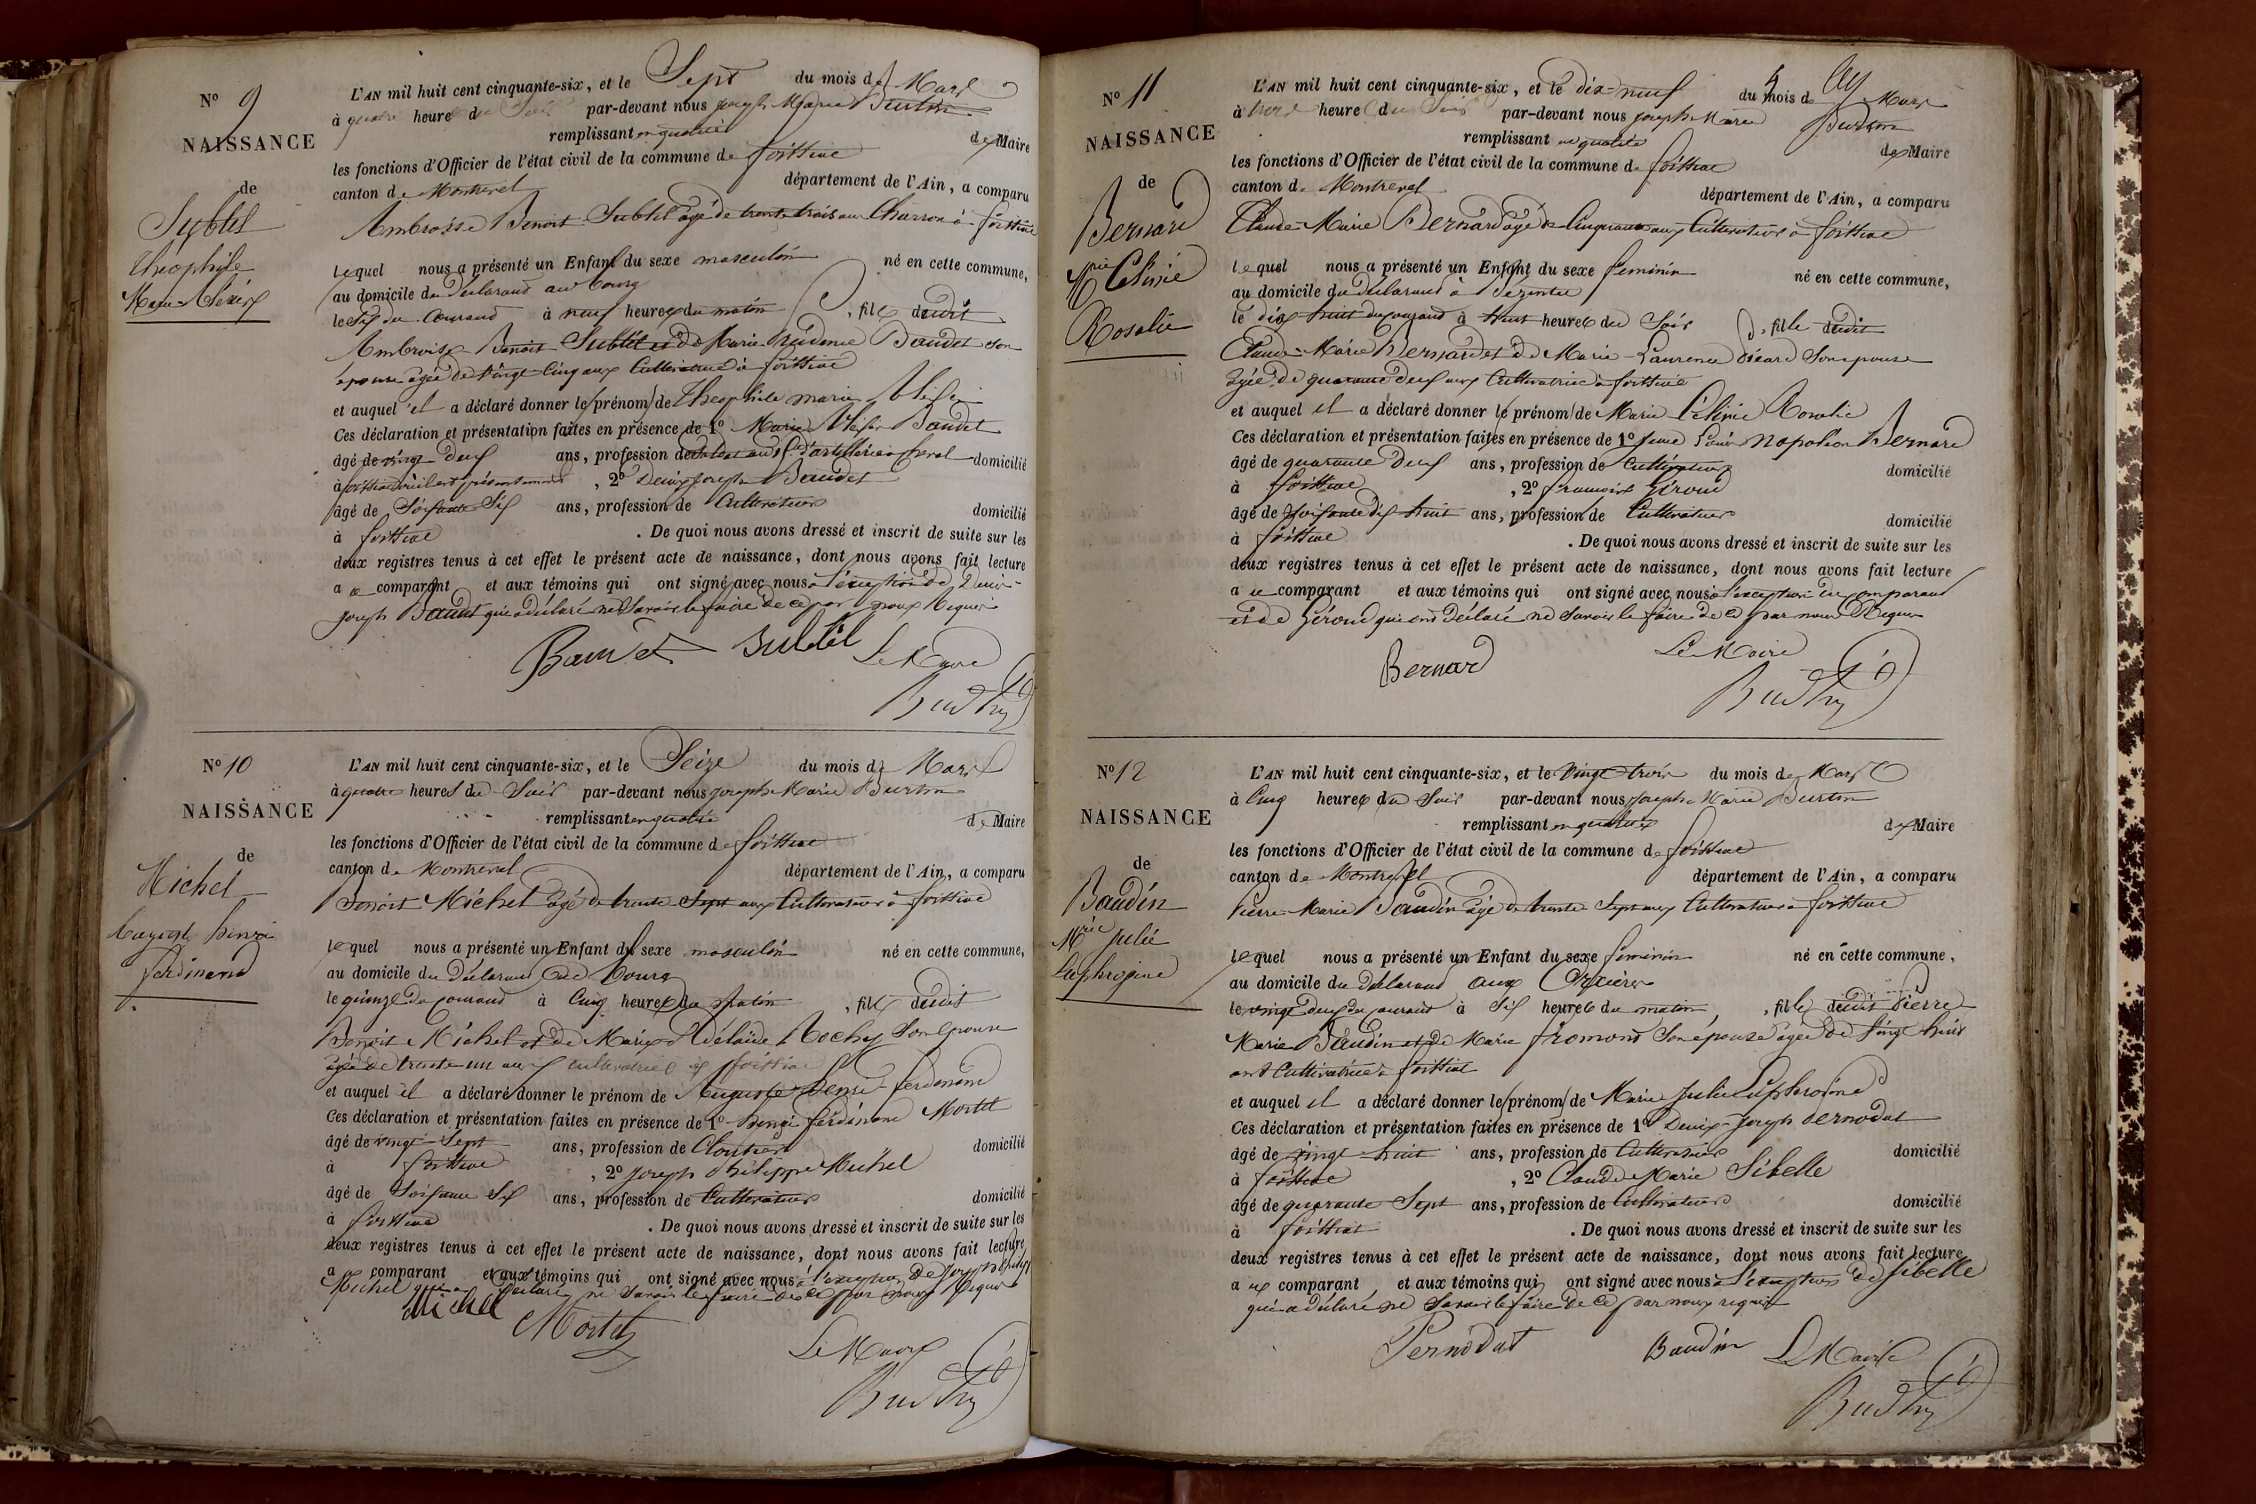 N° 9
NAISSANCE
de
Sublet
Théophile
Marie
L'AN mil huit cent cinquante-six, et le Sept du mois de Mars
à quatre heures du Soir par-devant nous joseph Marie Burtin
remplissant en qualité de Maire
les fonctions d'Officier de l'état civil de la commune de foissiat
canton de Montrevel département de l'Ain, a comparu
Ambroise Benoit Sublet agé de trente trois ans Charron à foissiat
lequel nous a présenté un Enfant du sexe masculin né en cette commune,
au domicile du déclarant au bourg
le Six du Courant à neuf heures du matin, fils dudit
Ambroise Benoit Sublet et de Marie Prudence Baudet son
épouse agée de Vingt Cinq ans Cultivatrice à foissiat
et auquel il a déclaré donner les prénoms de Theophile marie
Ces déclaration et présentation faites en présence de 1° Marie Baudet
âgé de vingt Deux ans, profession de Soldat au d'artillerie domicilié
à présentement, 2° Denis joseph Baudet
âgé de Soixante Six ans, profession de Cultivateur domicilié
à foissiat. De quoi nous avons dressé et inscrit de suite sur les
deux registres tenus à cet effet le présent acte de naissance, dont nous avons fait lecture
a ce comparant et aux témoins qui ont signé avec nous à l'exception de Denis
joseph Baudet qui a déclaré ne Savoir le faire de ce par nous Requis
Baudet Sublet Le Maire
Burtin
N° 10
NAISSANCE
de
Michel
Auguste henri
ferdinand
L'AN mil huit cent cinquante-six, et le Seize du mois de Mars
à quatre heures du Soir par-devant nous joseph Marie Burtin
remplissant en qualité de Maire
les fonctions d'Officier de l'état civil de la commune de foissiat
canton de Montrevel département de l'Ain, a comparu
Benoit Michel agé de trente Sept ans Cultivateur à foissiat
lequel nous a présenté un Enfant du sexe masculin né en cette commune,
au domicile du déclarant au bourg
le quinze du courant à Cinq heures du matin, fils dudit
Benoit Michel et de Marie Adélaïde Rochay Son épouse
agée de trente un ans cultivatrice à foissiat
et auquel il a déclaré donner le prénom de Auguste henri ferdinand
Ces déclaration et présentation faites en présence de 1° henri ferdinand Mortel
âgé de vingt Sept ans, profession de Cloutier domicilié
à foissiat, 2° joseph Philippe Michel
âgé de Soixante Six ans, profession de Cultivateur domicilié
à foissiat. De quoi nous avons dressé et inscrit de suite sur les
deux registres tenus à cet effet le présent acte de naissance, dont nous avons fait lecture
a ce comparant et aux témoins qui ont signé avec nous à l'exception de joseph philippe
Michel qui a déclaré ne Savoir le faire de ce par nous Requis
Michel Mortel
Le Maire
Burtin
N° 11
NAISSANCE
de
Bernard
Mrie Célinie
Rosalie
L'AN mil huit cent cinquante-six, et le dix-neuf du mois de Mars
à trois heures du Soir par-devant nous joseph Marie Burtin
remplissant en qualité de Maire
les fonctions d'Officier de l'état civil de la commune de foissiat
canton de Montrevel département de l'Ain, a comparu
Claude-Marie Bernard agé de Cinquante ans Cultivateur à foissiat
lequel nous a présenté un Enfant du sexe feminin né en cette commune,
au domicile du déclarant à
le dix huit du courant à huit heures du Soir, fille dudit
Claude-Marie Bernard et de Marie-Laurence Sicard Son épouse
agée de quarante deux ans Cultivatrice à foissiat
et auquel il a déclaré donner les prénoms de Marie Célinie Rosalie
Ces déclaration et présentation faites en présence de 1° Louis Napoléon Bernard
âgé de quarante Deux ans, profession de Cultivateur domicilié
à foissiat, 2° françois Giroud
âgé de Soixante dix huit ans, profession de Cultivateur domicilié
à foissiat. De quoi nous avons dressé et inscrit de suite sur les
deux registres tenus à cet effet le présent acte de naissance, dont nous avons fait lecture
a ce comparant et aux témoins qui ont signé avec nous à l'exception du comparant
et de Giroud qui ont déclaré ne Savoir le faire de ce par nous Requis
Bernard Le Maire
Burtin
N° 12
NAISSANCE
de
Baudin
Mrie Julie
Euphrosine
L'AN mil huit cent cinquante-six, et le Vingt-trois du mois de Mars
à Cinq heures du Soir par-devant nous joseph Marie Burtin
remplissant en qualité de Maire
les fonctions d'Officier de l'état civil de la commune de foissiat
canton de Montrevel département de l'Ain, a comparu
Pierre-Marie Baudin agé de trente Sept ans Cultivateur à foissiat
lequel nous a présenté un Enfant du sexe feminin né en cette commune,
au domicile du déclarant aux
le vingt deux du courant à Six heures du matin, fille dudit Pierre
Marie Baudin et de Marie fromont Son épouse agée de Vingt huit
ans Cultivatrice à foissiat
et auquel il a déclaré donner les prénoms de Marie Julie Euphrosine
Ces déclaration et présentation faites en présence de 1° Denis-Joseph Pernodat
âgé de vingt huit ans, profession de Cultivateur domicilié
à foissiat, 2° Claude Marie Sibelle
âgé de quarante Sept ans, profession de Cultivateur domicilié
à foissiat. De quoi nous avons dressé et inscrit de suite sur les
deux registres tenus à cet effet le présent acte de naissance, dont nous avons fait lecture
a ce comparant et aux témoins qui ont signé avec nous à l'exception de Sibelle
qui a déclaré ne Savoir le faire de ce par nous requis
Pernodat Baudin Le Maire
Burtin